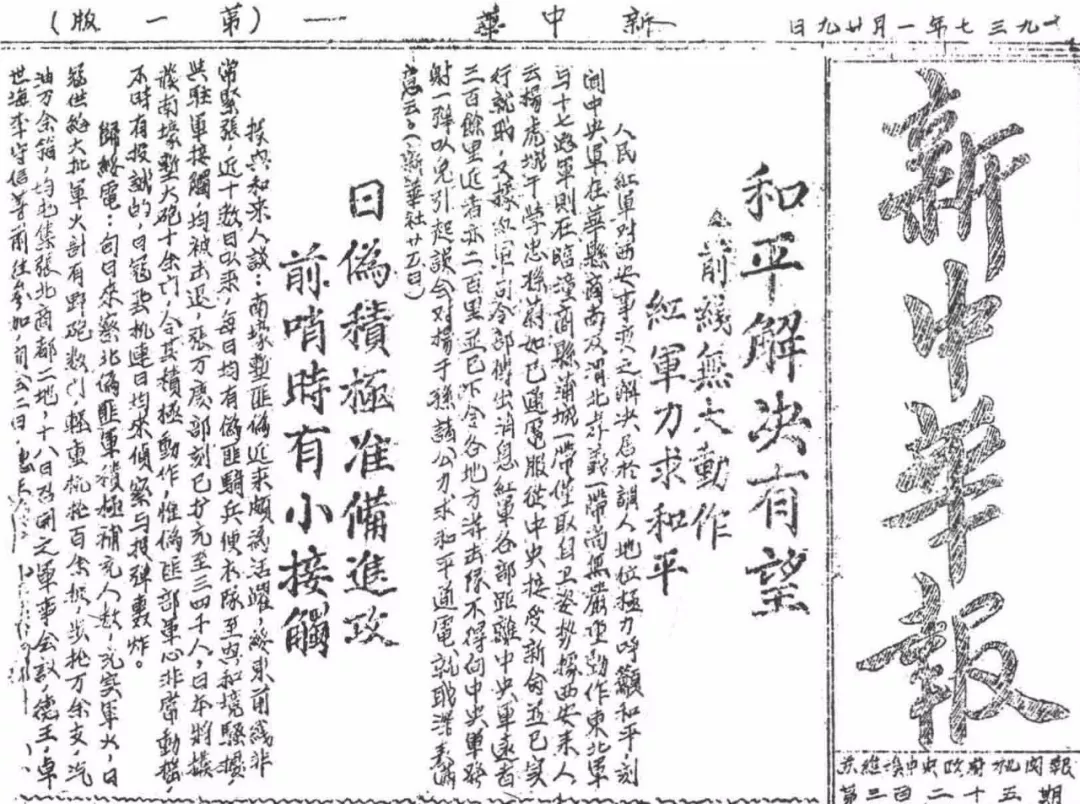 一九三七年一月廿九日
新中華
(第一版)
新中華報
蘇維埃中央政府机関報
第三百二十五期
和平解决有望
前綫無大動作
紅軍力求和平
人民紅軍对西安事変之解决居於調人地位极力呼籲和平,刻
聞中央軍在華縣商南及渭北孝義一帶尚無嚴重動作東北軍
与十七路軍則在臨潼商縣蒲城一帶僅取自卫姿勢據西安来人
云揚虎城于學忠孫蔚如已通電服從中央接受新命並已实
行就戢,又據紅軍司令部傳出消息紅軍各部距離中央軍遠者
三百餘里近者亦二百里並已下令各地方游击隊不得向中央軍發
射一弹以免引起误会对揚于孫諸公力求和平通電就戢深表满
意云。(新華社廿五日)
日偽積極准備進攻
前哨時有小接觸
投與和来人談:南壕塹匪偽近来頗爲活躍,綏東前綫非
常緊張,近十数日以来,每日均有偽匪騎兵便衣隊至與和境騷擾,
與駐軍接觸,均被击退,張万慶部刻已扩充至三四千人,日本將撥
南壕塹大砲十余门,令其積極動作,惟偽匪部軍心非常動搖,
不時有投誠的,日寇飛机連日均来偵察与投弹轰炸。
歸綏電:旬日来察北偽匪軍積極補充人数,充实軍火,日
寇供給大批軍火計有野砲数门輕重机枪百余挺,步枪万余支,汽
油万余箱,均屯集張北商都二地,十八日召開之軍事会議,德王,卓
世海李守信等前往参加,